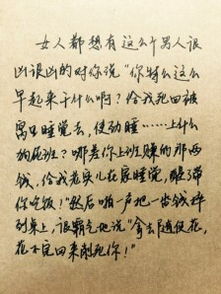 女人都想有这么个男人很
凶很凶的对你说“你特么这么
早起来干什么啊？给我死回被
窝里睡觉去，使劲睡……上什么
狗屁班？哪差你上班赚的那两
钱，给我老实儿在家睡觉，醒了带
你吃饭！”然后啪一声把一沓钱摔
到桌上，很霸气地说“拿去随便花，
花不完回来削死你！”